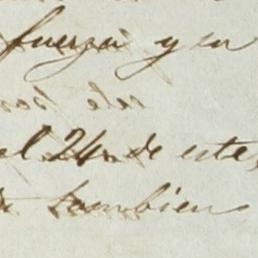 fuerza y en
el 24 de este,
tambien